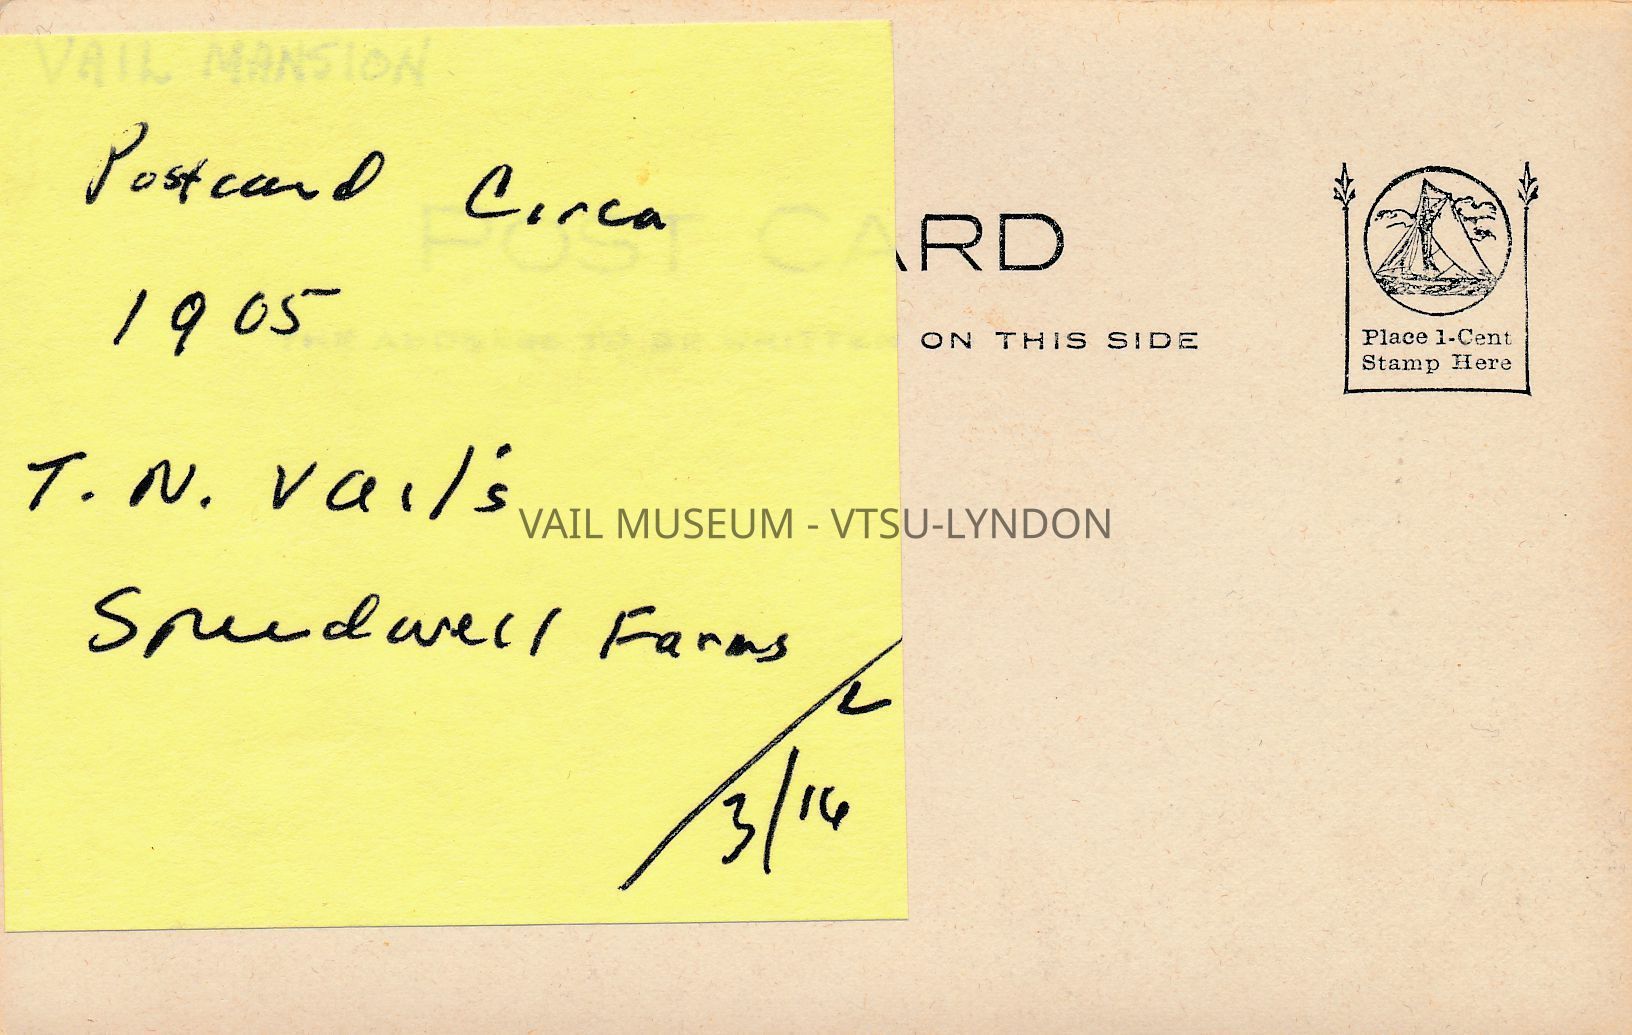 VAIL MANSION
Postcard Circa
1905
T. N. Vail's
Speedwell Farms
2
3/14
POST CARD
THE ADDRESS TO BE WRITTEN ON THIS SIDE
Place 1-Cent
Stamp Here
VAIL MUSEUM - VTSU-LYNDON